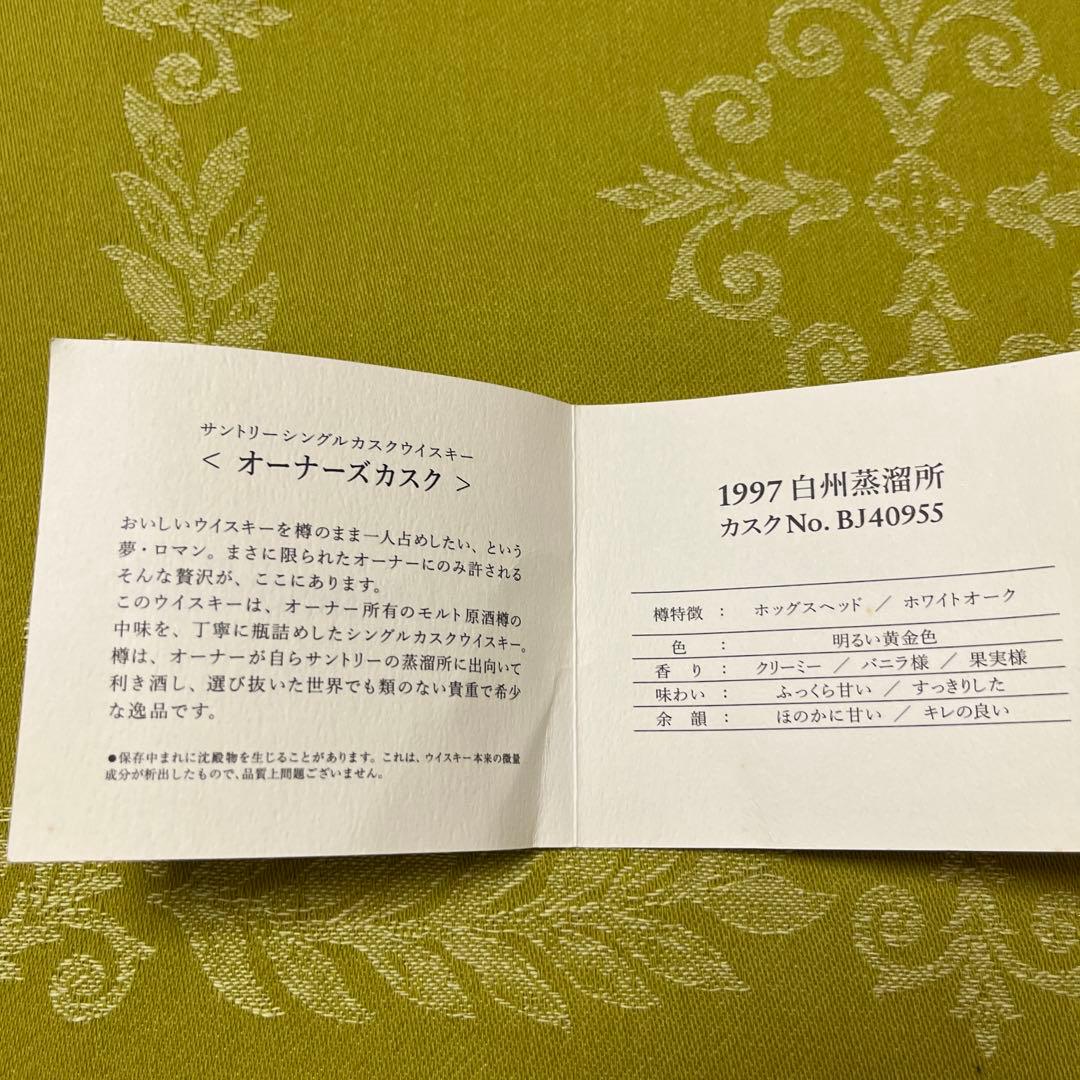 サントリーシングルカスクウイスキー
< オーナーズカスク >
おいしいウイスキーを樽のまま一人占めしたい、という
夢・ロマン。まさに限られたオーナーにのみ許される
そんな贅沢が、ここにあります。
このウイスキーは、オーナー所有のモルト原酒樽の
中味を、丁寧に瓶詰めしたシングルカスクウイスキー。
樽は、オーナーが自らサントリーの蒸溜所に出向いて
利き酒し、選び抜いた世界でも類のない貴重で希少
な逸品です。
●保存中まれに沈殿物を生じることがあります。これは、ウイスキー本来の微量
成分が析出したもので、品質上問題ございません。
1997 白州蒸溜所
カスクNo. BJ40955
樽特徴 : ホッグスヘッド / ホワイトオーク
色 : 明るい黄金色
香り : クリーミー / バニラ様 / 果実様
味わい : ふっくら甘い / すっきりした
余韻 : ほのかに甘い / キレの良い